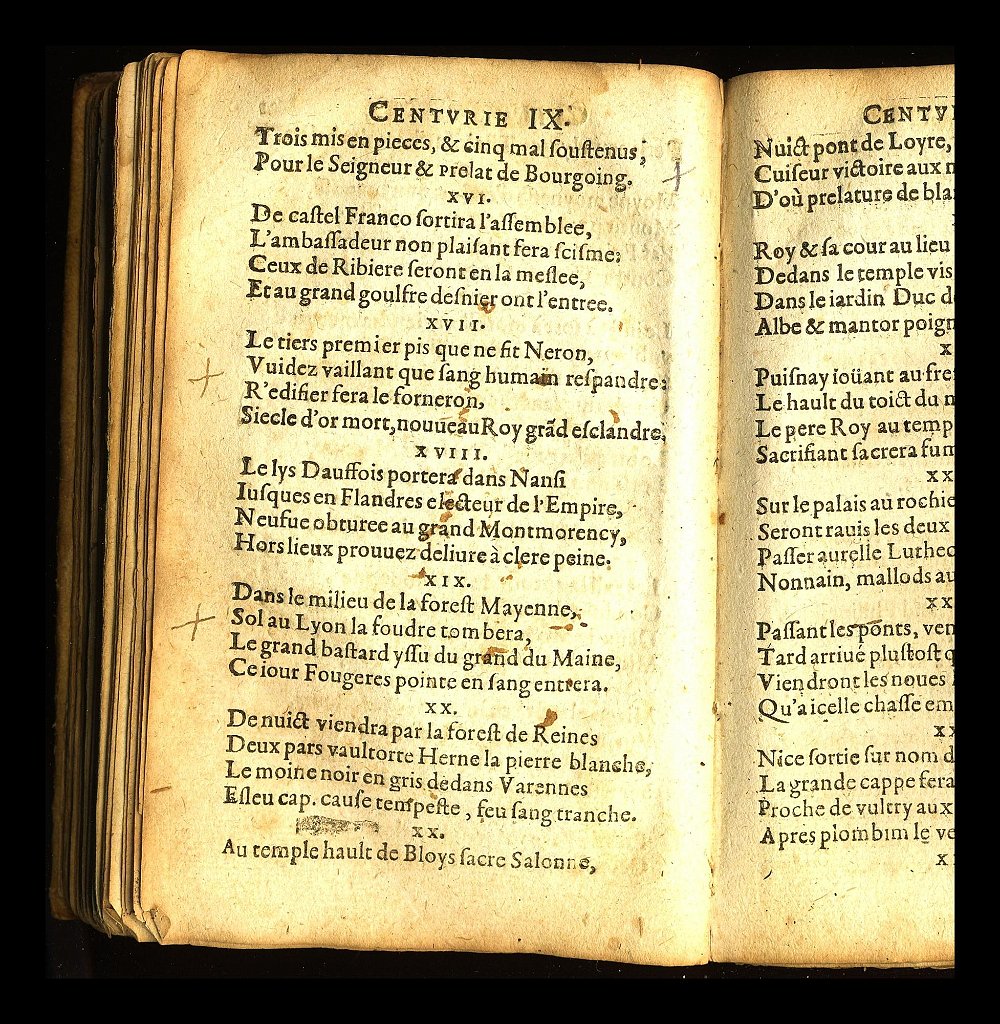 CENTVRIE IX.
Trois mis en pieces, & cinq mal souſtenus,
Pour le Seigneur & prelat de Bourgoing.
XVI.
De caſtel Franco ſortira l'aſſemblee,
L'ambaſſadeur non plaiſant fera ſciſme:
Ceux de Ribiere ſeront en la meſlee,
Et au grand goulfre deſnier ont l'entree.
XVII.
Le tiers premier pis que ne fit Neron,
Vuidez vaillant que ſang humain reſpandre:
R'edifier fera le forneron,
Siecle d'or mort, nouueau Roy grãd eſclandre,
XVIII.
Le lys Dauffois portera dans Nanſi
Iuſques en Flandres electeur de l'Empire,
Neufue obturee au grand Montmorency,
Hors lieux prouuez deliure à clere peine.
XIX.
Dans le milieu de la foreſt Mayenne,
Sol au Lyon la foudre tombera,
Le grand baſtard yſſu du grand du Maine,
Ce iour Fougeres pointe en ſang entrera.
XX.
De nuict viendra par la foreſt de Reines
Deux pars vaultorte Herne la pierre blanche,
Le moine noir en gris dedans Varennes
Eſleu cap. cauſe tempeſte, feu ſang tranche.
XX.
Au temple hault de Bloys ſacre Salonne,
CENTV
Nuict pont de Loyre,
Cuiſeur victoire aux
D'où prelature de
Roy & ſa cour au lieu
Dedans le temple vis
Dans le iardin Duc
Albe & mantor
X
Puiſnay ioüant au
Le hault du toict du
Le pere Roy au
Sacrifiant ſacrera
XX
Sur le palais au
Seront rauis les deux
Paſſer aurelle
Nonnain, mallods
XX
Paſſant les ponts,
Tard arriué pluſtoſt
Viendront les noues
Qu'à icelle chaſſe
XX
Nice ſortie ſur nom
La grande cappe fera
Proche de vultry aux
Apres plombim le
X